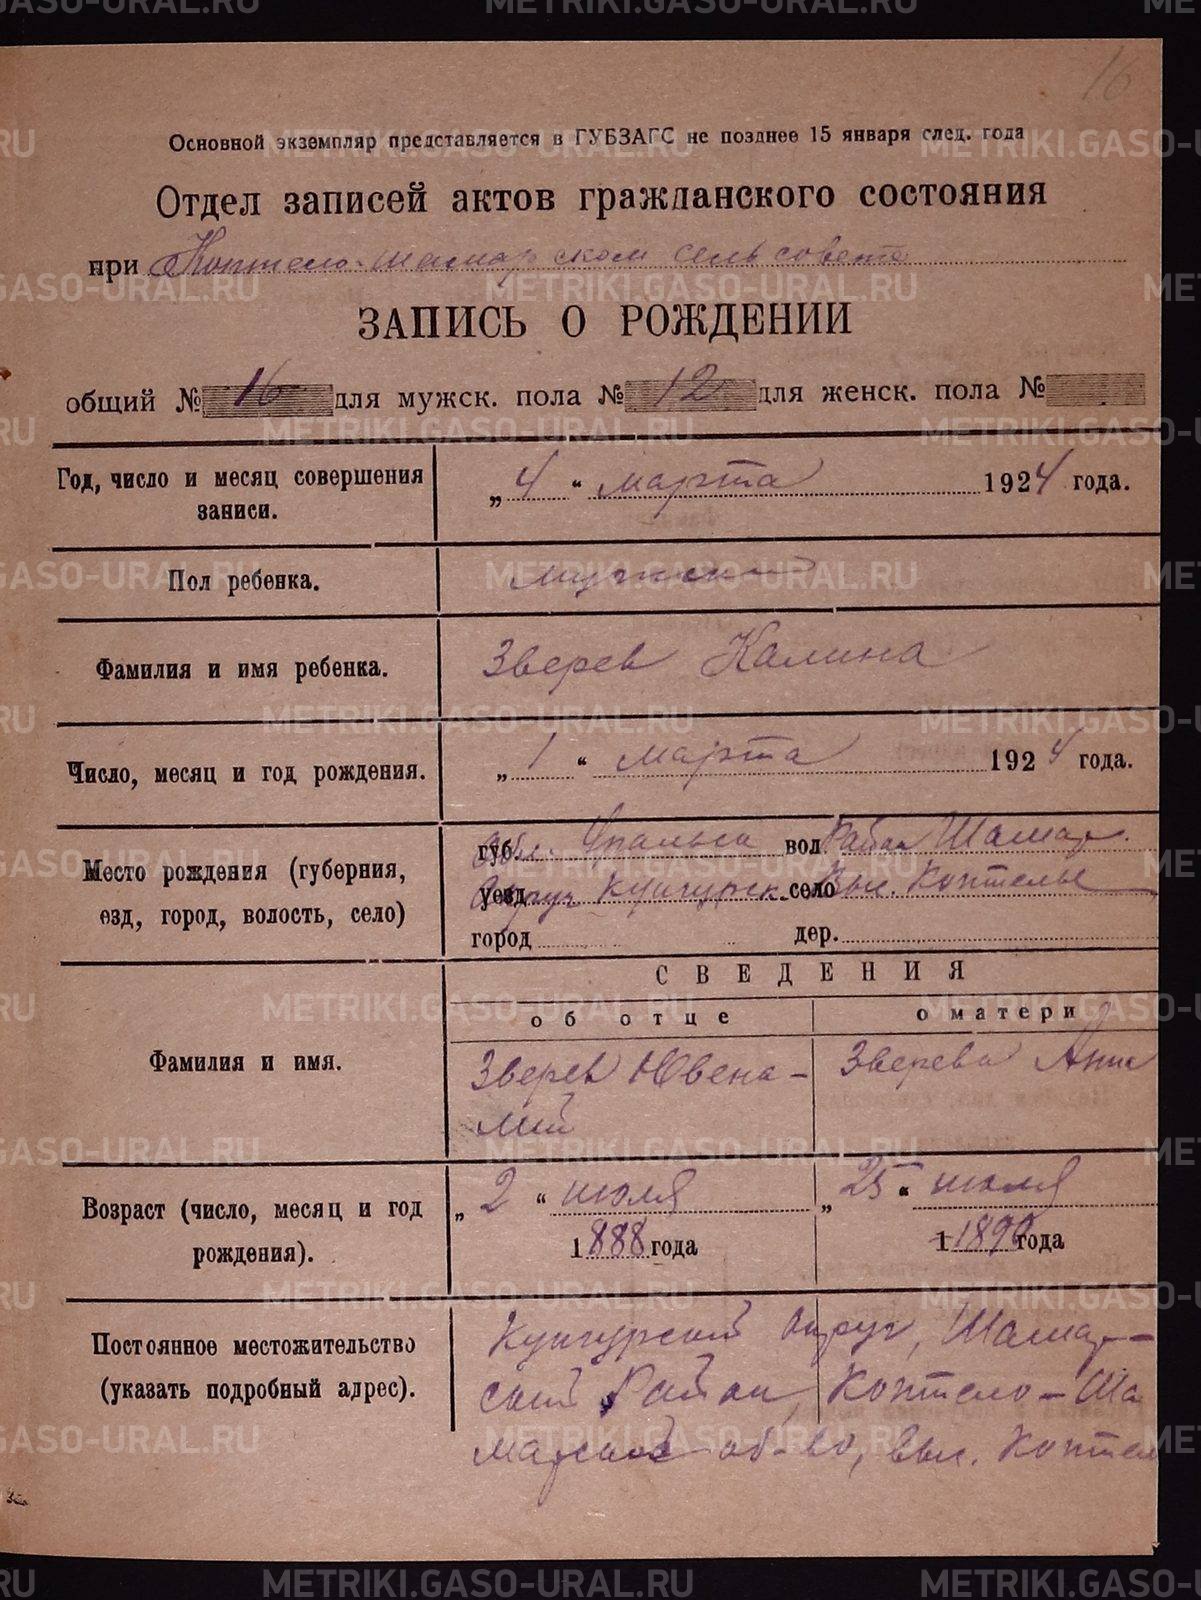 16
Основной экземпляр представляется в ГУБЗАГС не позднее 15 января след. года
Отдел записей актов гражданского состояния
при Коптело-шамарском сельсовете
ЗАПИСЬ О РОЖДЕНИИ
общий № 16 для мужск. пола № 12 для женск. пола №
Год, число и месяц совершения записи. „ 4 “ марта 1924 года.
Пол ребенка. мужской
Фамилия и имя ребенка. Зверев Калина
Число, месяц и год рождения. „ 1 “ марта 1924 года.
Место рождения (губерния, губ. Обл. Уральск вол Район Шамар.
езд, город, волость, село) уезд Округ Кунгурск. село Выс. Коптелы
город дер.
СВЕДЕНИЯ
об отце о матери
Фамилия и имя. Зверев Ювена- Зверева Анна
лий
Возраст (число, месяц и год „ 2 “ июля „ 25 “ июля
рождения). 1888 года 1 1890 года
Постоянное местожительство Кунгурский округ, Шамар-
(указать подробный адрес). ский Район, Коптело-Ша
марское об-во, выс. Коптел
METRIKI.GASO-URAL.RU